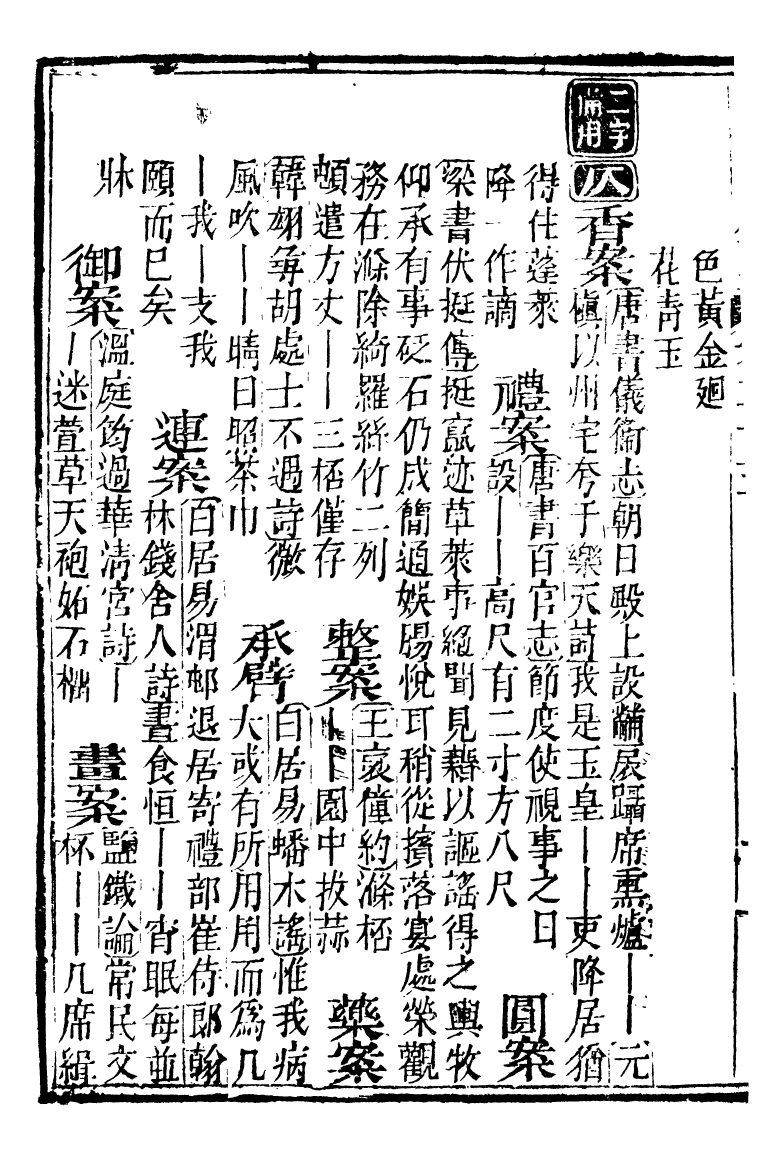 色黃金廻
花靑玉
二字備用
仄
香案
唐書儀衞志朝日殿上設黼扆躡席熏爐｜｜元
稹以州宅夸于樂天詩我是玉皇｜｜吏降居猶
得住蓬萊
降一作謫
禮案
唐書百官志節度使視事之日
設｜｜高尺有二寸方八尺
圓案
梁書伏挺傳挺竄迹草萊事絕聞見藉以謳謠得之輿牧
仰承有事砭石仍成簡通娛腸悅耳稍從擯落宴處榮觀
務在滌除綺羅絲竹二列
頓遣方丈｜｜三桮僅存
整案
王褒僮約滌桮
｜｜園中拔蒜
藥案
韓翃尋胡處士不遇詩微
風吹｜｜晴日照茶巾
承臂
白居易蟠木謠惟我病
大或有所用用而爲几
｜我｜支我
頤而已矣
連案
百居易渭邨退居寄禮部崔侍郎翰
林錢舍人詩晝食恒｜｜宵眠每並
牀
御案
溫庭筠過華淸宮詩｜
｜迷萱草天袍妬石榴
畫案
鹽鐵論常民文
杯｜｜几席緝